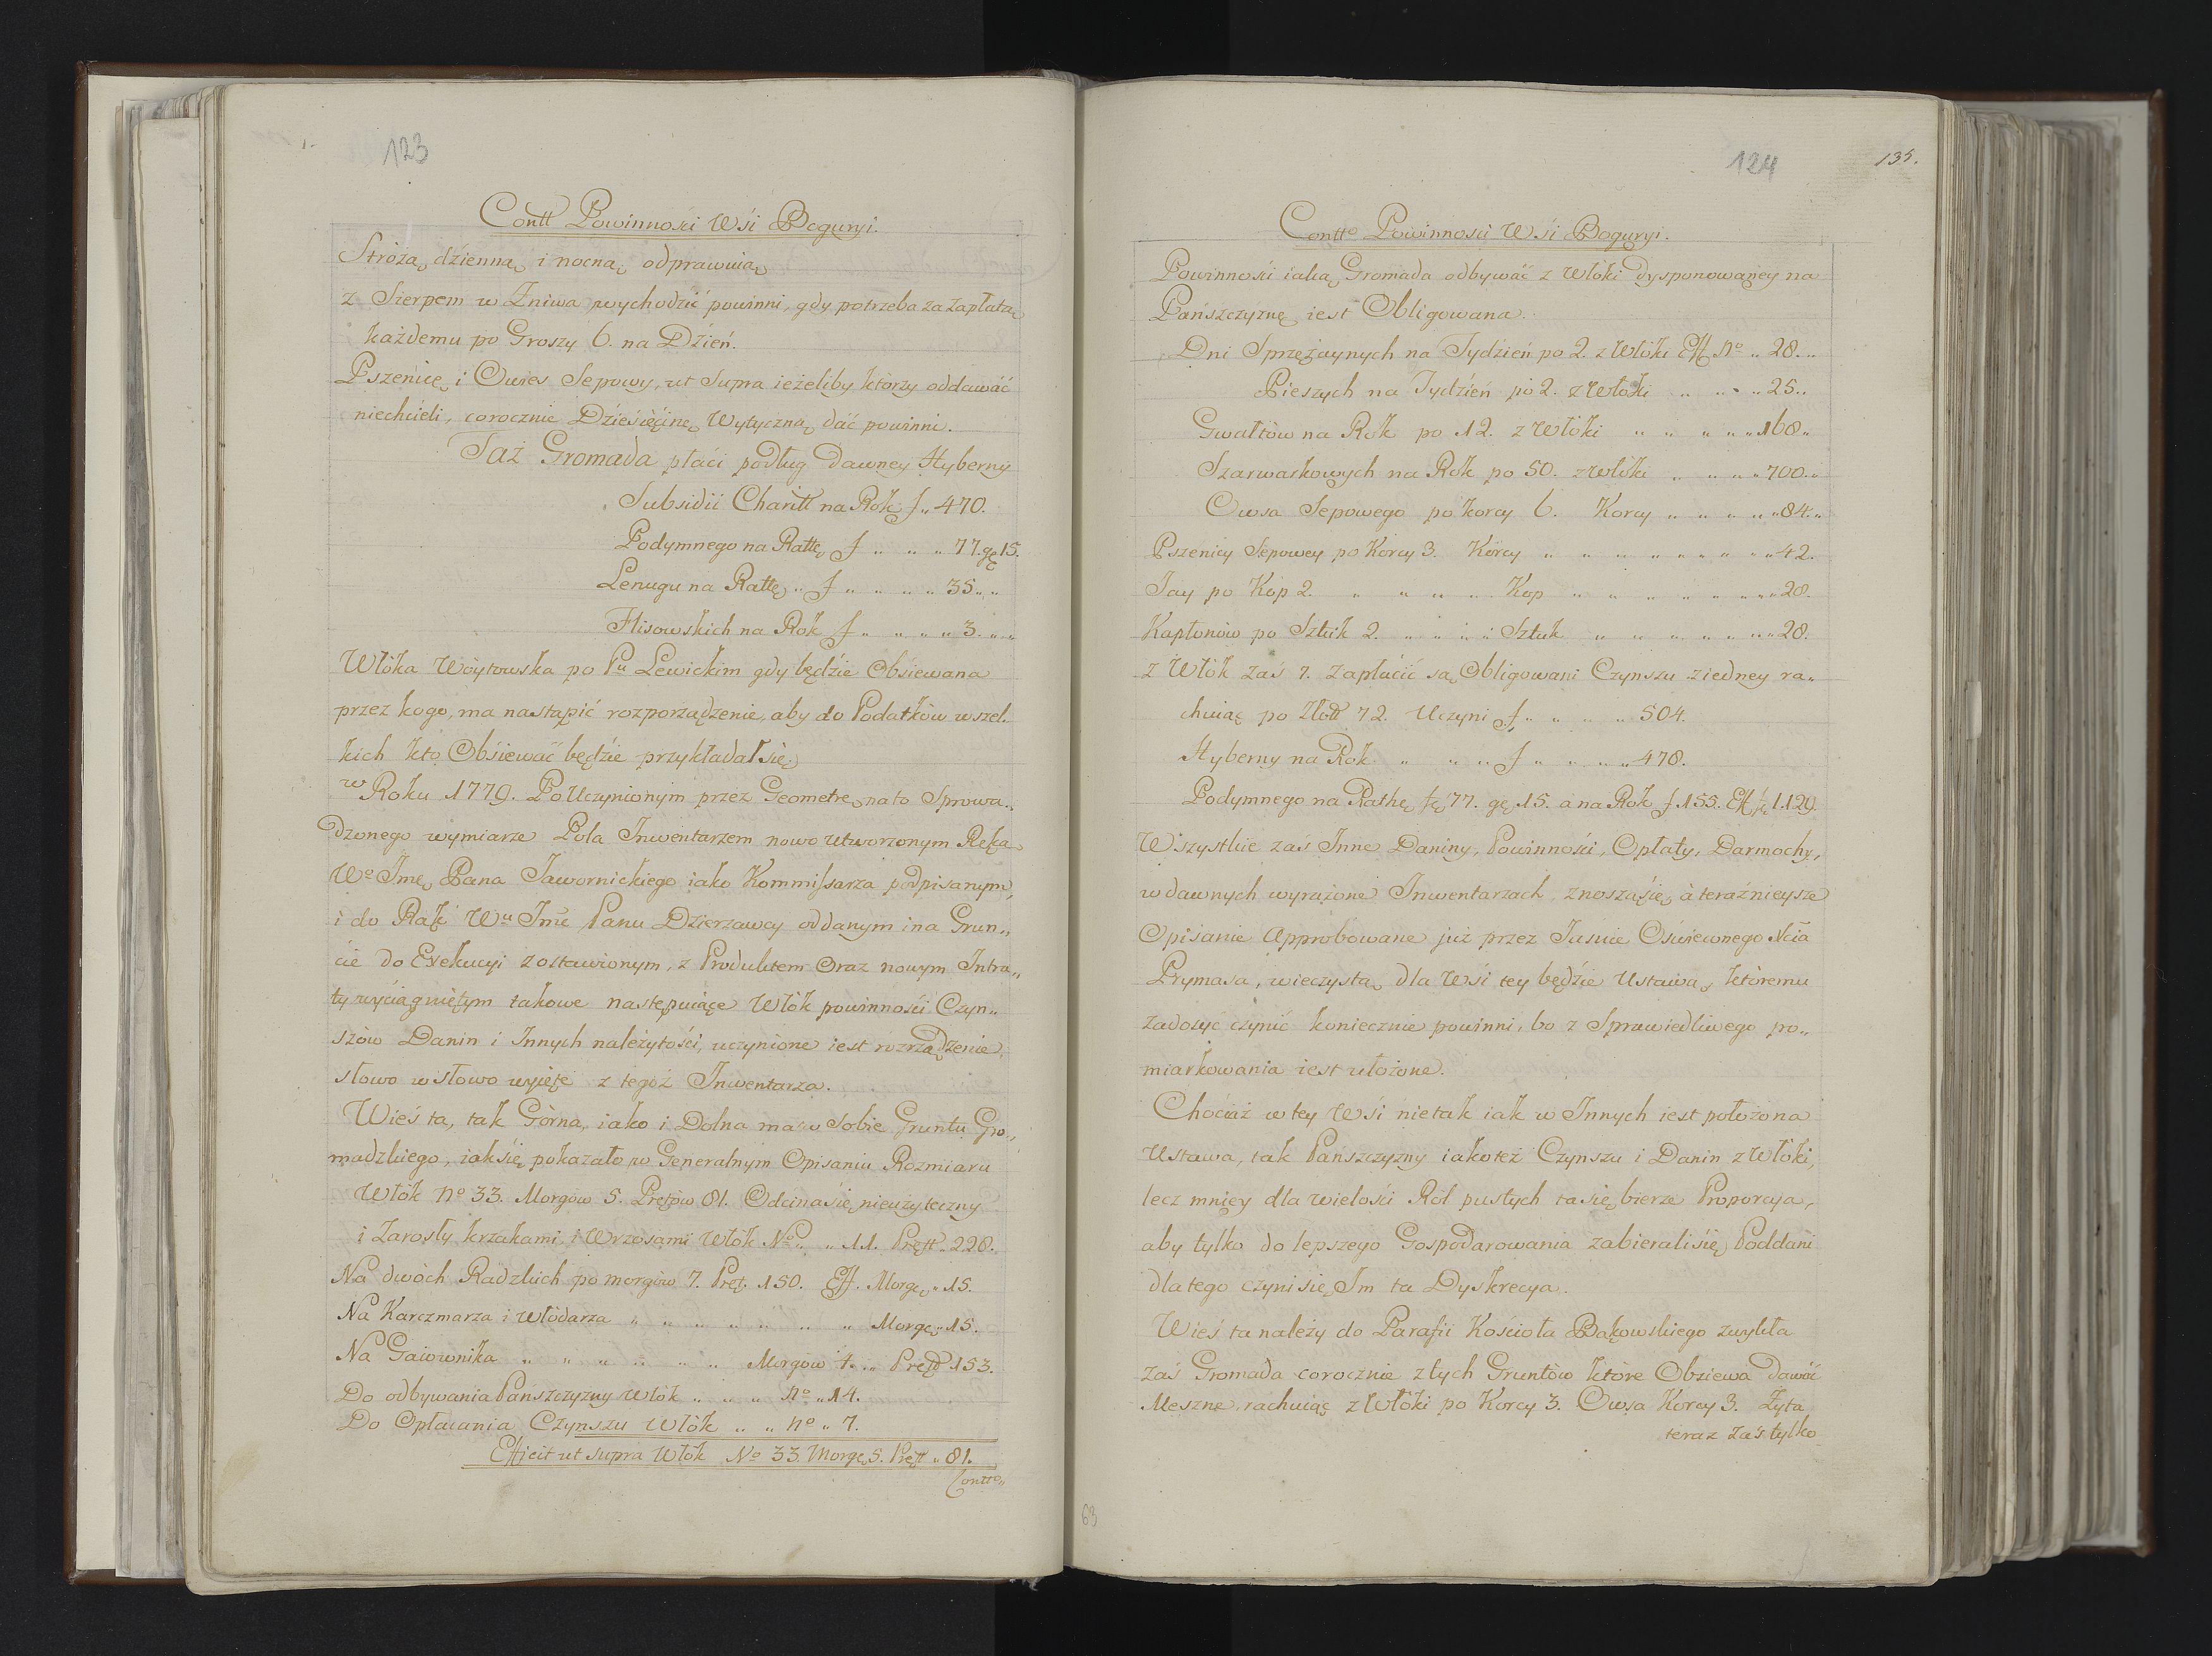 123
Contt Powinnosci Wśi Boguryi.
Stróżą dzienną i nocną odprawuią
z Sierpem w Żniwa wychodzić powinni, gdy potrzeba za zapłatą
każdemu po Groszy 6. na Dzień.
Pszenicę i Owies Sepowy, ut Supra ieżeliby którzy oddawáć
niechcieli, corocznie Dzieśięcinę Wytyczną dáć powinni.
Taż Gromada płaci podług Dawney Hyberny
Subsidii Charitt na Rok f „ 470.
Podymnego na Rattę f „ „ „ 77. gę 15.
Lenugu na Rattę „ f „ „ „ „ 35 „ „
Flisowskich na Rok f „ „ „ „ 3. „ „
Włóka Woytowska po Pu Lewickim gdy będzie Obsiewana
przez kogo, ma nastąpić rozporządzenie, aby do Podatków wszel.
kich kto Obśiewáć będzie przykładał się
w Roku 1779. Po Uczynionym przez Geometrę na to Sprowa„
dzonego wymiarze Pola Inwentarzem nowo utworzonym Ręką
Wo Imę Pana Jawornickiego iako Kommissarza podpisanym,
i do Rąk Wu Imć Panu Dzierzawcy oddanym i na Grun„
cie do Exekucyi zostawionym, z Produktem Oraz nowym Intra„
ty wyciągniętym takowe następuiące Włók powinności Czyn„
szów Danin i Innych należytości, uczynione iest rozrządzenie,
słowo w słowo wyięte z tegoż Inwentarza.
Wieś ta, tak Górna, iako i Dolna ma w Sobie Gruntu Gro„
madzkiego, iak się pokazało w Generalnym Opisaniu Rozmiaru
Włók No 33. Morgów 5. Prętów 81. Odcina się nieużyteczny
i Zarosły krzakami i Wrzosami Włók No „ „ 11. Prętt „ 228.
Na dwóch Radzkich po morgów 7. Pręt. 150. Eff. Morgę „ 15.
Na Karczmarza i Włódarza „ „ „ „ „ „ „ Morgę „ 15.
Na Gaiownika „ „ „ „ „ „ Morgów 4. „ Prętt 153.
Do odbywania Pańszczyzny Włók „ „ „ no „ 14.
Do Opłacania Czynszu Włók „ „ no „ 7.
Efficit ut supra Włók No 33. Morgę 5. Prętt „ 81.
Contto„
124
135.
Contto Powinnosci Wśi Boguryi.
Powinnośći iaką Gromada odbywáć z Włóki dysponowaney na
Pańszczyznę iest Obligowana.
Dni Sprzężaynych na Tydzień po 2. z Włóki Eff no „ 28. „
Pieszych na Tydzień po 2. z Włoki „ „ „ „ 25 „
Gwałtów na Rok po 12. z Włóki „ „ „ „ „ 168 „
Szarwaskowych na Rok po 50. z Włóki „ „ „ „ 700. „
Owsa Sepowego po korcy 6. Korcy „ „ „ „ „ 84. „
Pszenicy Sepowey po Korcy 3. Korcy „ „ „ „ „ „ „ „ 42.
Jay po Kop 2. „ „ „ „ Kop „ „ „ „ „ „ „ „ 28.
Kapłonów po Sztuk 2. „ „ „ „ Sztuk „ „ „ „ „ „ „ 28.
z Włók zaś 7. zapłácić są Obligowani Czynszu z iedney ra„
chuiąc po Złott 72. Uczyni f „ „ „ „ 504.
Hyberny na Rok „ „ „ f „ „ „ „ 478.
Podymnego na Rathę fę 77. gę 15. a na Rok f 155. Eff fę 1.129.
Wszystkie zaś Inne Daniny, Powinności, Opłaty, Darmochy,
w dawnych wyrażone Inwentarzach znoszą się, à teraźnieysze
Opisanie Approbowane już przez Jasnie Oświeconego Xcia
Prymasa, wieczystą dla Wśi tey będzie Ustawą, któremu
zadosyć czynić koniecznie powinni, bo z Sprawiedliwego po„
miarkowania iest ułożone.
Choćiaż w tey Wśi nie tak iak w Innych iest położona
Ustawa, tak Pańszczyzny iako też Czynszu i Danin z Włóki,
lecz mniey dla wielości Ról pustych ta się bierze Proporcya,
aby tylko do lepszego Gospodarowania zabierali się Poddani
dla tego czyni się Im ta Dyskrecya.
Wieś ta należy do Parafii Kościoła Bąkowskiego zwykła
zaś Gromada corocznie z tych Gruntów które Obsiewa dawáć
Meszne, rachuiąc z Włóki po Korcy 3. Owsa Korcy 3. Żyta
teraz zaś tylko
63